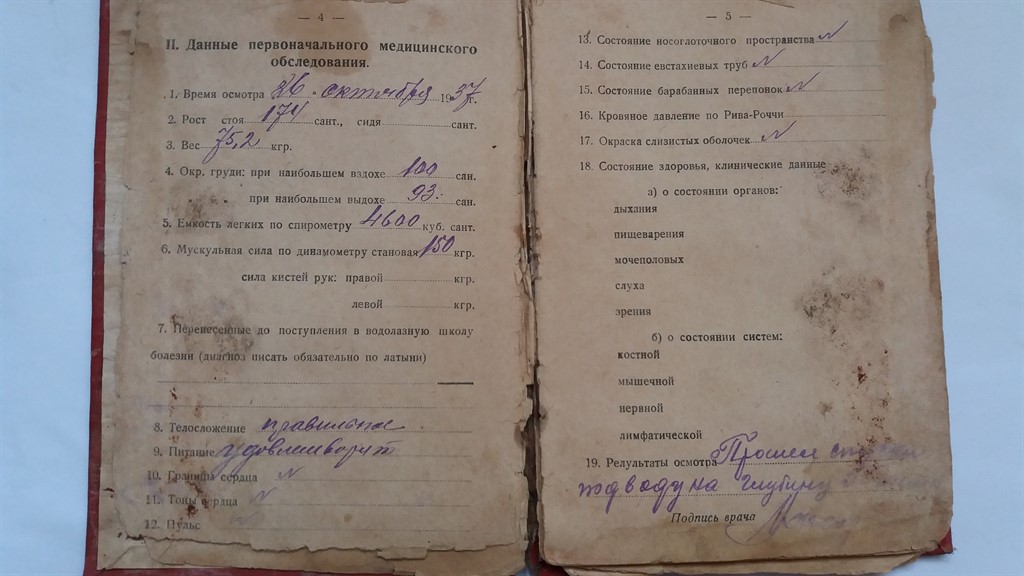 — 4 —
II. Данные первоначального медицинского
обследования.
1. Время осмотра 26 октября 1937г.
2. Рост стоя 174 сант., сидя сант.
3. Вес 75,2 кгр.
4. Окр. груди: при наибольшем вздохе 100 сан.
при наибольшем выдохе 93 сан.
5. Емкость легких по спирометру 4600 куб. сант.
6. Мускульная сила по динамометру становая 150 кгр.
сила кистей рук: правой кгр.
левой кгр.
7. Перенесенные до поступления в водолазную школу
болезни (диагноз писать обязательно по латыни)
8. Телосложение правильное
9. Питание удовлетворит
10. Границы сердца N
11. Тоны сердца N
12. Пульс
— 5 —
13. Состояние носоглоточного пространства N
14. Состояние евстахиевых труб N
15. Состояние барабанных перепонок N
16. Кровяное давление по Рива-Роччи
17. Окраска слизистых оболочек N
18. Состояние здоровья, клинические данные
а) о состоянии органов:
дыхания
пищеварения
мочеполовых
слуха
зрения
б) о состоянии систем:
костной
мышечной
нервной
лимфатической
19. Результаты осмотра Прошел
под воду на глубину
Подпись врача